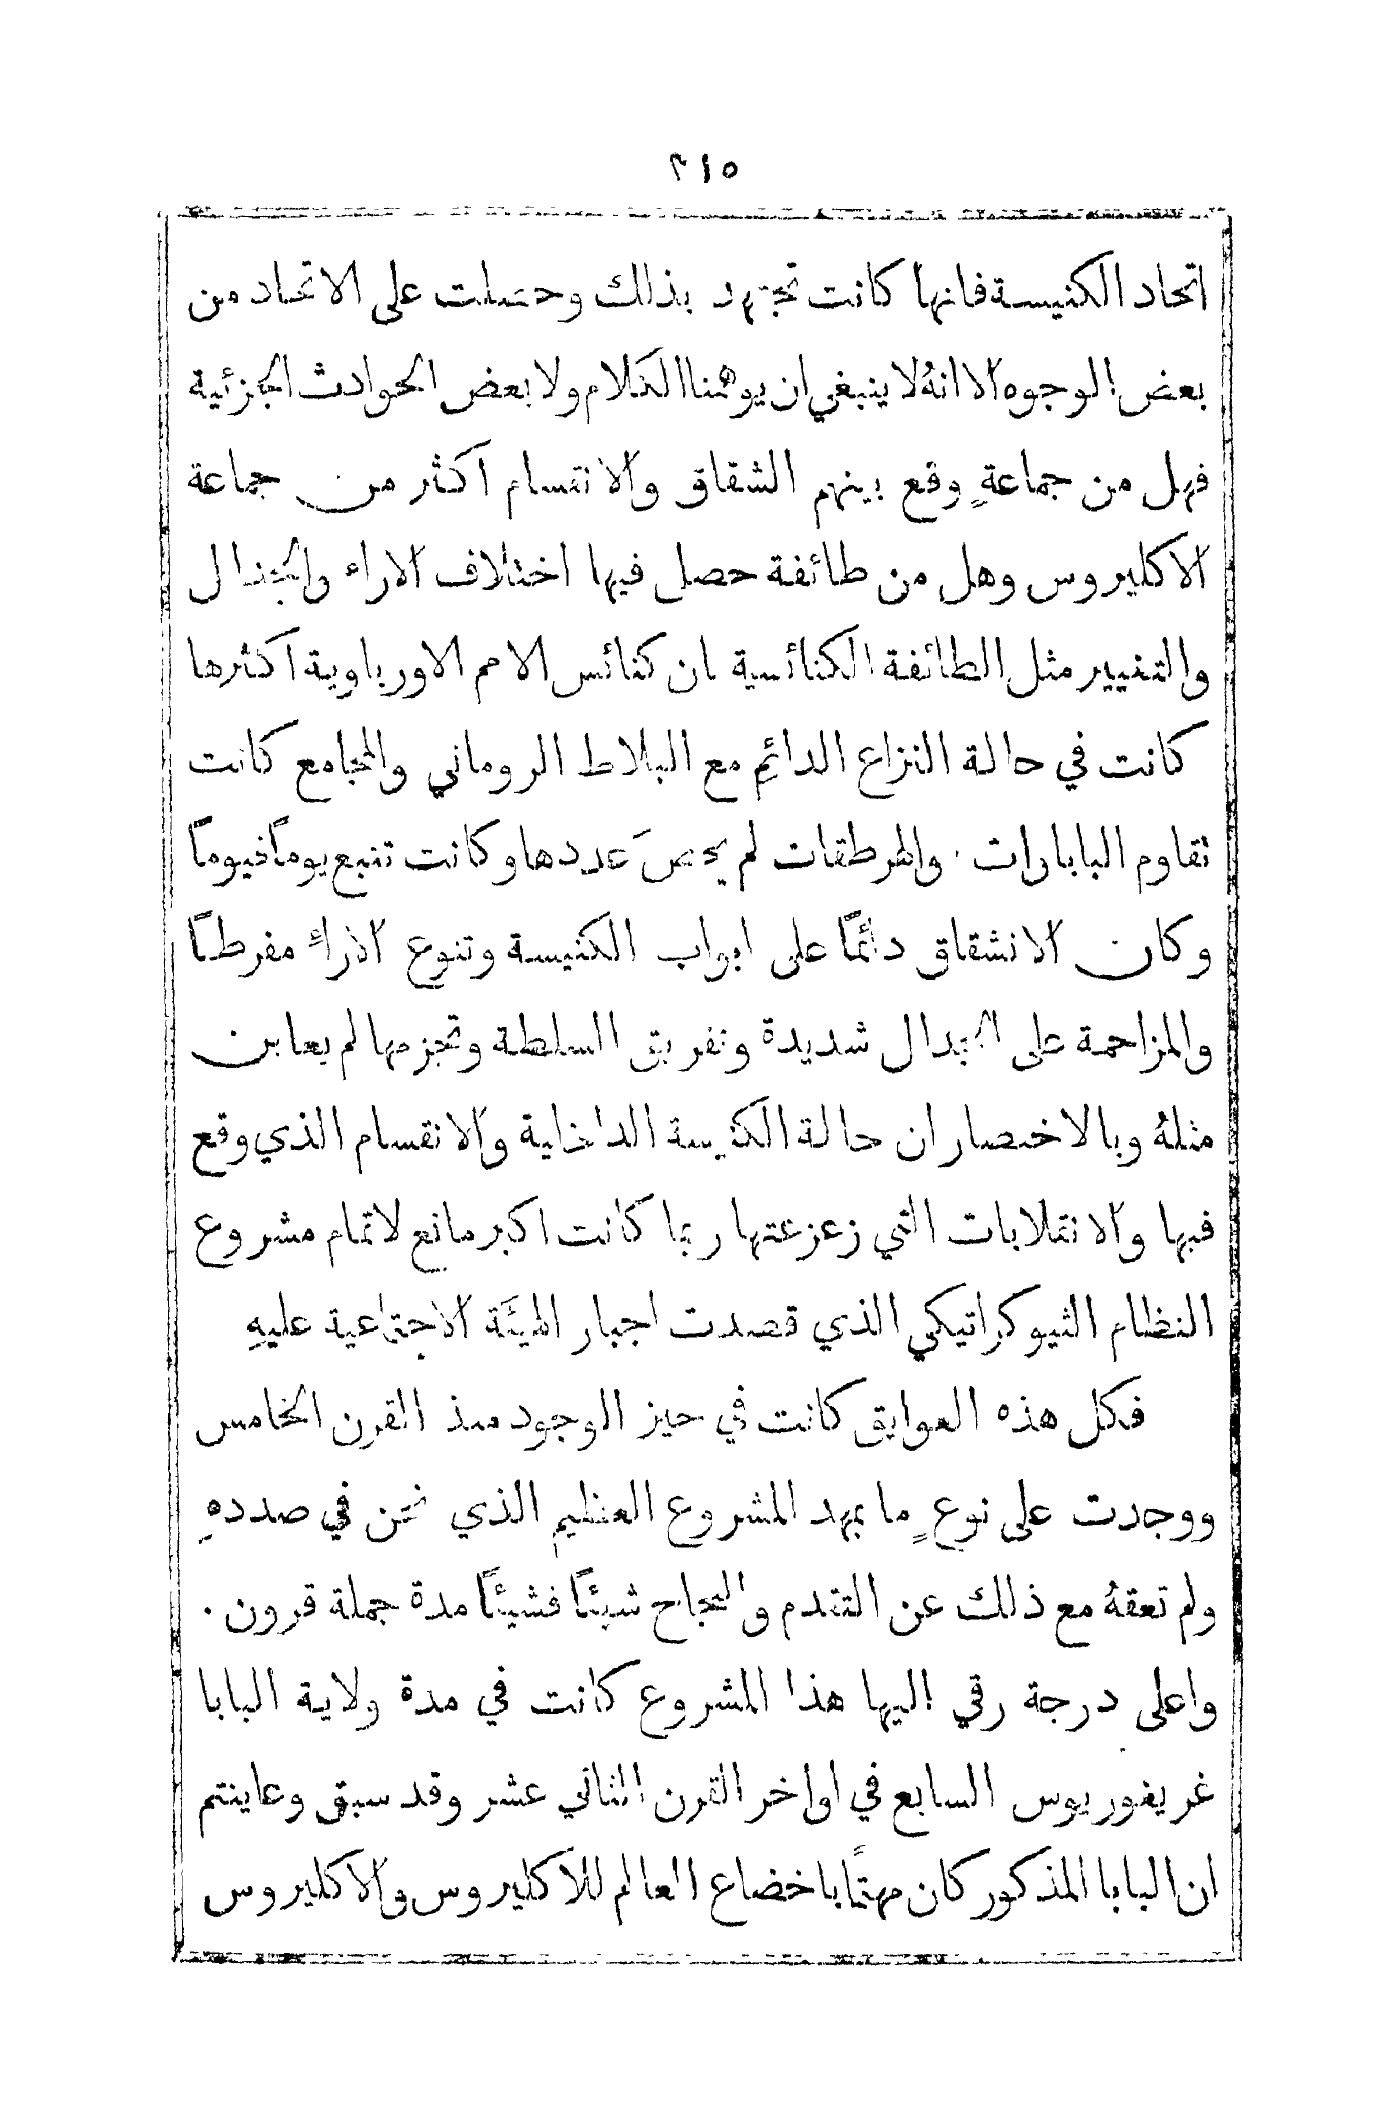 ٣١٥
اتحاد الكنيسة فانها كانت تجتهد بذلك وحصلت على الاتحاد من
بعض الوجوه الا انهُ لا ينبغي ان يوهمنا الكلام ولا بعض الحوادث الجزئية
فهل من جماعةٍ وقع بينهم الشقاق والانقسام اكثر من جماعة
الاكليروس وهل من طائفة حصل فيها اختلاف الاراء والجدال
والتغيير مثل الطائفة الكنائسية ان كنائس الامم الاورباوية اكثرها
كانت في حالة النزاع الدائم مع البلاط الروماني والمجامع كانت
تقاوم البابارات . والهرطقات لم يحصَ عددها وكانت تنبع يوماً فيوماً
وكان الانشقاق دائماً على ابواب الكنيسة وتنوع الاراءِ مفرطاً
والمزاحمة على الجدال شديدة وتفريق السلطة وتجزمها لم يعاين
مثلهُ وبالاختصار ان حالة الكنيسة الداخلية والانقسام الذي وقع
فيها والانقلابات التي زعزعتها ربما كانت اكبر مانع لاتمام مشروع
النظام الثيوكراتيكي الذي قصدت اجبار الهيئَة الاجتماعية عليهِ
فكل هذه العوايق كانت في حيز الوجود منذ القرن الخامس
ووجدت على نوعٍ ما بمهد المشروع العظيم الذي نحن في صددهِ
ولم تعقهُ مع ذلك عن التقدم والنجاح شيئاً فشيئاً مدة جملة قرون .
واعلى درجة رقي اليها هذا المشروع كانت في مدة ولاية البابا
غريغوريوس السابع في اواخر القرن الثاني عشر وقد سبق وعاينتم
ان البابا المذكور كان مهتماً باخضاع العالم للاكليروس والاكليروس